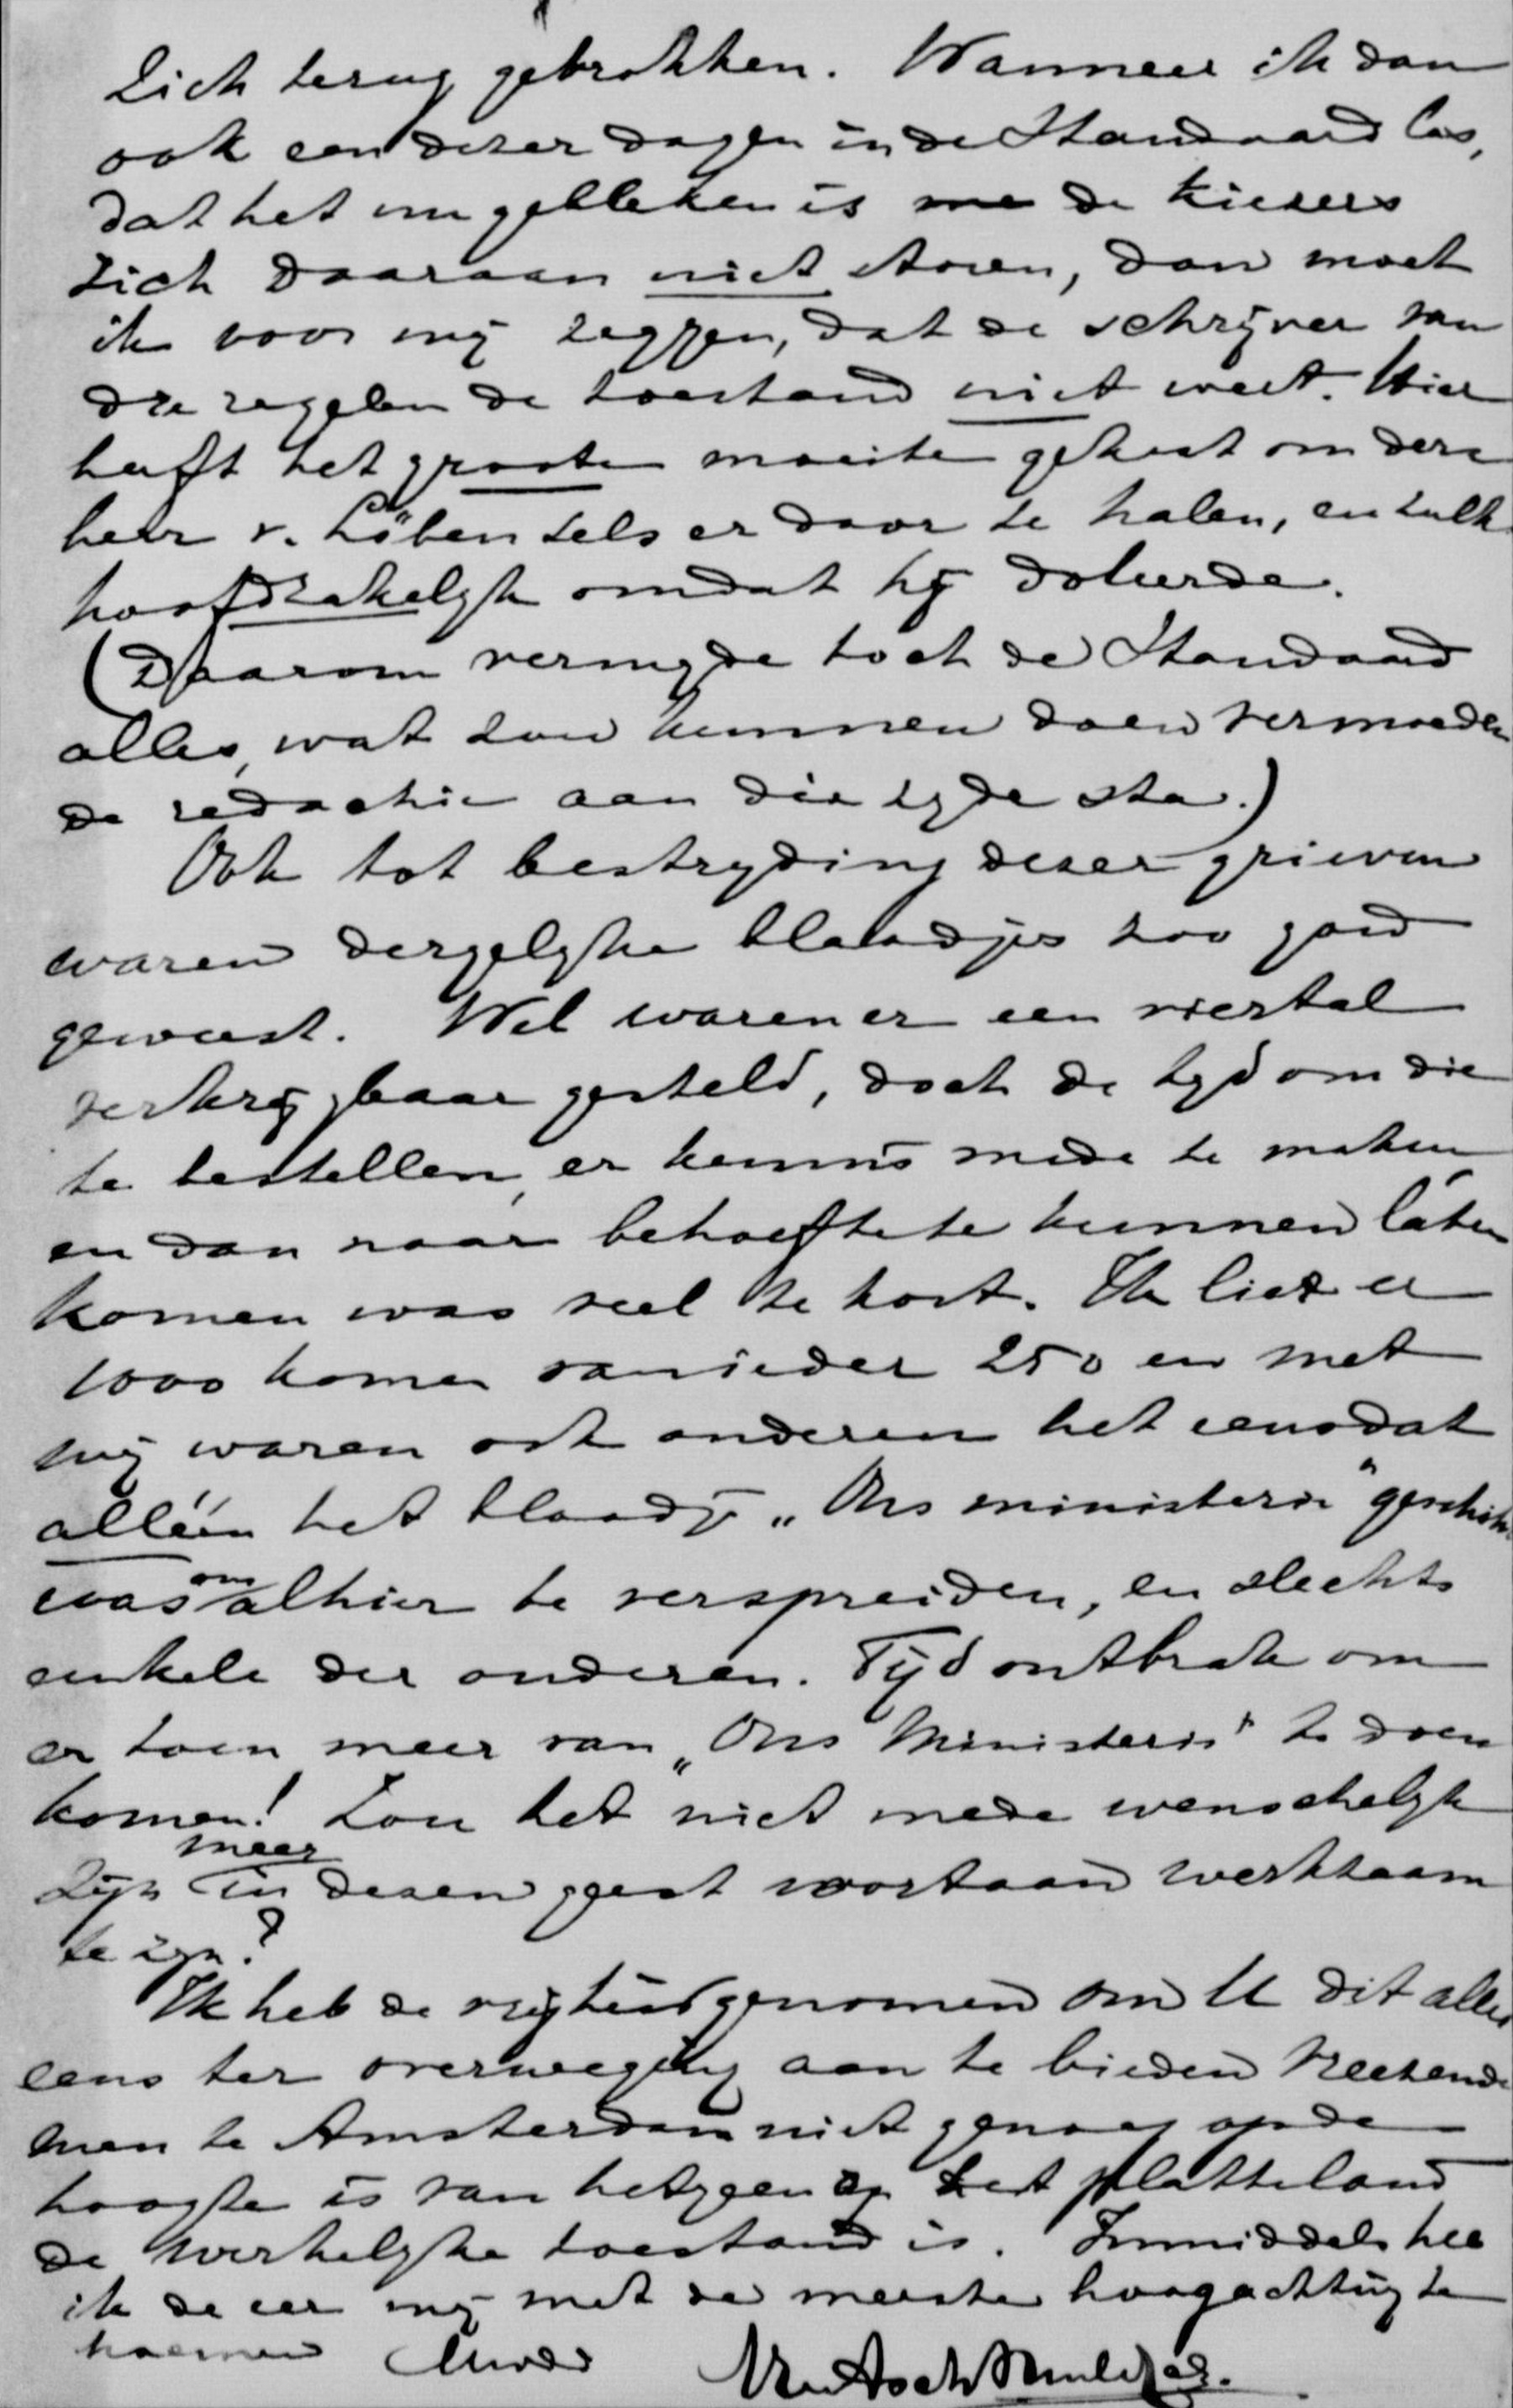 Zich terug getrokken. Wanneer ik dan
ook een dezer dagen in de Standaard las,
dat het nu gebleken is de kiezers
zich daaraan niet storen, dan moet
ik voor mij zeggen, dat de schrijver van
die regelen de toestand niet weet. Hier
heeft het groote moeite gekost om deze
heer v. Löben Sels er door te halen, en zulk
hoofdzakelijk omdat hij doleerde.
(Daarom vermijde toch de Standaard
alles, wat zou kunnen doen vermoeden
de redactie aan die zijde sta.)
Ook tot bestrijding dezer grieven
waren dergelijke blaadjes zoo goed
geweest. Wel waren er een viertal
verkrijgbaar gesteld, doch de tijd om die
te bestellen, er kennis mede te maken
en dan naar behoefte te kunnen laten
komen was veel te kort. Ik liet er
1000 komen van ieder 250 en met
mij waren ook anderen het eens dat
alléén het blaadje „Ons ministerie" geschikt
was om alhier te verspreiden, en slechts
enkele der anderen. Tijd ontbrak om
er toen meer van „Ons Ministerie" te doen
komen! Zou het niet mede wenschelijk
zijn meer in dezen geest voortaan werkzaam
te zijn?
Ik heb de vrijheid genomen om U dit alles
eens ter overweging aan te bieden vreezende
men te Amsterdam niet genoeg op de
hoogte is van hetgeen op het platteland
de werkelijke toestand is. Inmiddels heb
ik de eer mij met de meeste hoogachting te
noemen